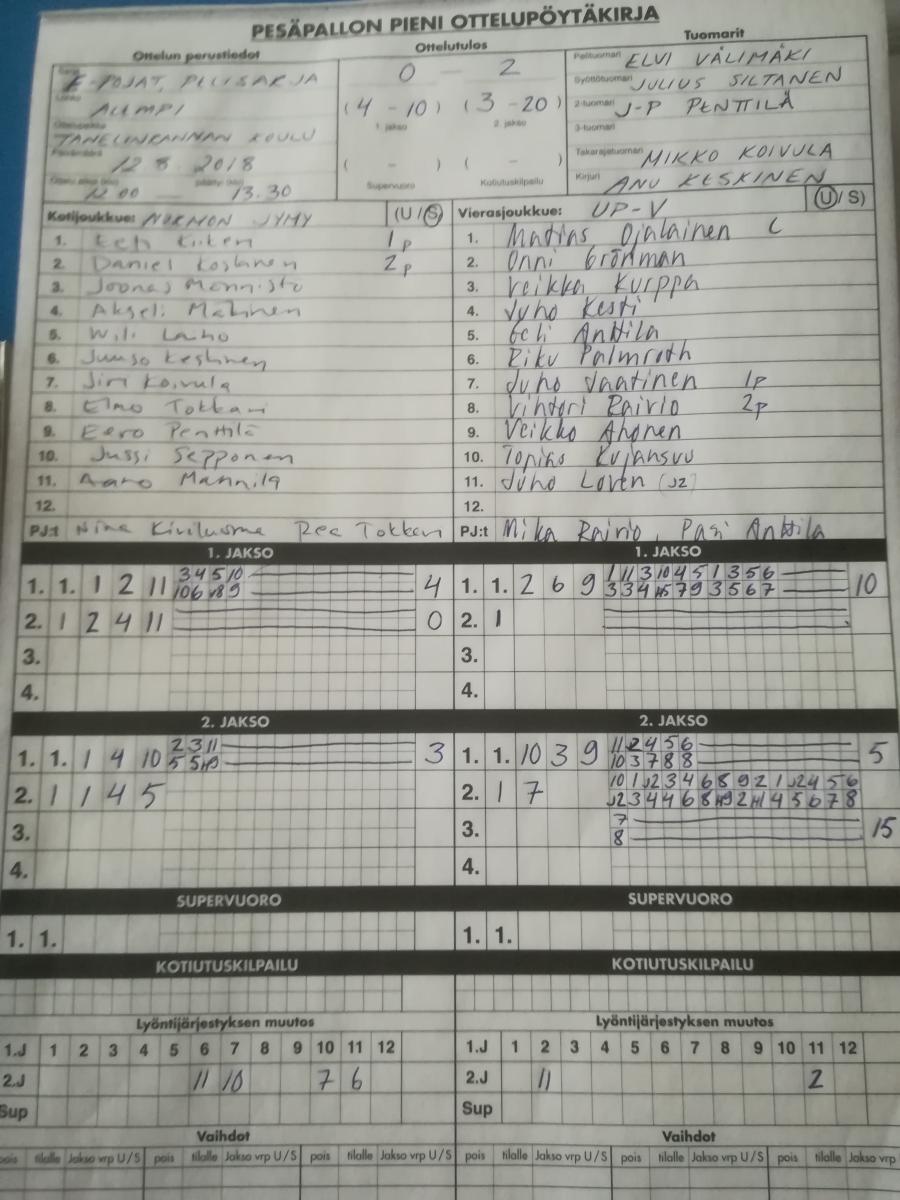 PESÄPALLON PIENI OTTELUPÖYTÄKIRJA
Ottelun perustiedot Ottelutulos Tuomarit
E-POJAT, PIIRISARJA 0 - 2 Pelituomari ELVI VÄLIMÄKI
ALEMPI (4 - 10) (3 - 20) Syöttötuomari JULIUS SILTANEN
1. jakso 2. jakso 2-tuomari J-P PENTTILÄ
TANELINRANNAN KOULU 3-tuomari
12 8. 2018 ( - ) ( - ) Takarajatuomari MIKKO KOIVULA
12.00 13.30 Supervuoro Kotiutuskilpailu Kirjuri ANU KESKINEN
Kotijoukkue: NURMON JYMY (U / S) Vierasjoukkue: UP-V (U / S)
1. Kiiken 1p 1. Matias Ojalainen C
2. Daniel Koskinen 2p 2. Onni Grönman
3. Joonas Mannisto 3. Veikka Kurppa
4. Akseli Makinen 4. Juho Kesti
5. Wili Laiho 5. Eeli Anttila
6. Juuso Keskinen 6. Riku Palmroth
7. Jiri Koivula 7. Juho Vaatinen 1p
8. Elmo Tokkari 8. Vihtori Rairio 2p
9. Eero Penttilä 9. Veikko Ahonen
10. Jussi Sepponen 10. Topias Kujansuu
11. Aaro Mannila 11. Juho Loven (J2)
12. 12.
PJ:t Nina Kiviluoma PJ:t Mika Rairio, Pasi Anttila
1. JAKSO 1. JAKSO
1. 1. 1 2 11 3 4 5 10 4 1. 1. 2 6 9 1 11 3 10 4 5 1 3 5 6 10
2. 1 2 4 11 0 2. 1
3. 3.
4. 4.
2. JAKSO 2. JAKSO
1. 1. 1 4 10 2 3 11 3 1. 1. 10 3 9 11 2 4 5 6 5
10 3 7 8 8
2. 1 1 4 5 2. 1 7 10 1 J2 3 4 6 8 9 2 1 J2 4 5 6
3. 3. 7 15
8
4. 4.
SUPERVUORO SUPERVUORO
1. 1. 1. 1.
KOTIUTUSKILPAILU KOTIUTUSKILPAILU
Lyöntijärjestyksen muutos Lyöntijärjestyksen muutos
1.J 1 2 3 4 5 6 7 8 9 10 11 12 1.J 1 2 3 4 5 6 7 8 9 10 11 12
2.J 11 10 7 6 2.J 11 2
Sup Sup
Vaihdot Vaihdot
pois tilalle Jakso vrp U / S pois tilalle Jakso vrp U / S pois tilalle Jakso vrp U / S pois tilalle Jakso vrp U / S pois tilalle Jakso vrp U / S pois tilalle Jakso vrp